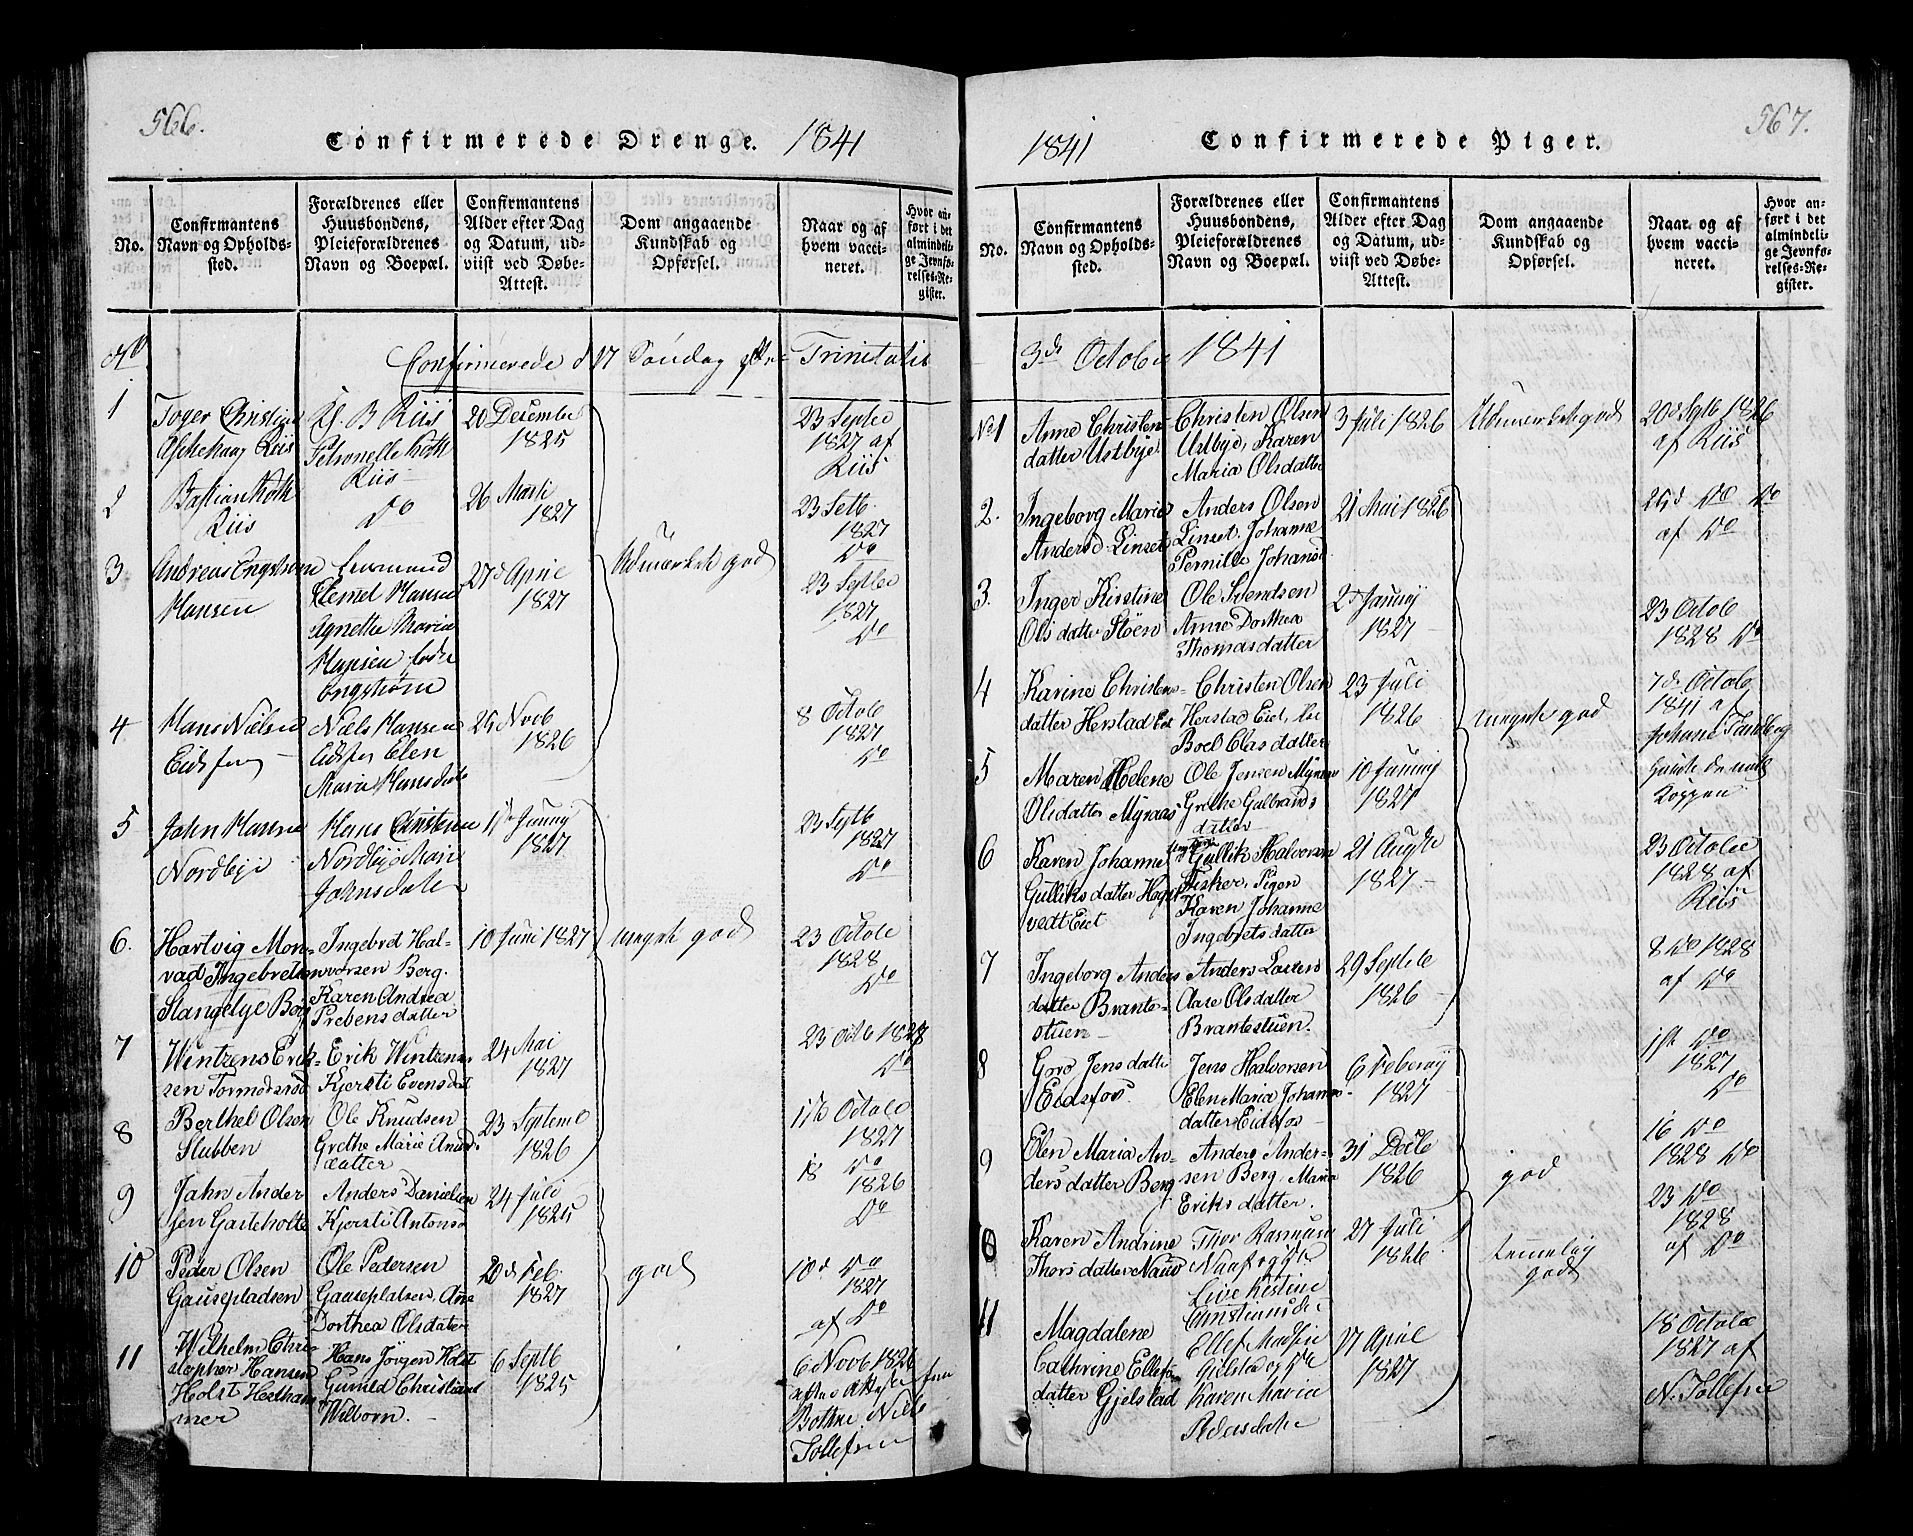 566.
Confirmerede Drenge. 1841
No.
Confirmantens
Navn og Opholds-
sted.
Forældrenes eller
Huusbondens,
Pleieforældrenes
Navn og Boepæl.
Confirmantens
Alder efter Dag
og Datum, ud-
viist ved Døbe-
Attest.
Dom angaaende
Kundskab og
Opførsel.
Naar og af
hvem vacci-
neret.
Hvor an-
ført i det
almindeli-
ge Jevnfø-
relses-Re-
gister.
Confirmerede d 17 Søndag Trinitatis
1
Christian
Riis
B Riis
Petronelle Koth
Riis
20 December
1825
23 Septbr
1827 af
Riis
2
Bastian Koth
Riis
Do
26 Marti
1827
23 Setb.
1827
Do
3
Andreas Engstrøm
Hansen
Hansen
Agnethe Maria
Hansen født
Engstrøm
27de April
1827
Udmærket god
23 Septbr
1827
Do
4
Hans Nielsen
Eidsfos
Niels Hansen
Eidsfos Elen
Maria Hansdatr
25 Novb
1826
8 Octobr
1827
Do
5
John Hansen
Nordbye
Hans Christensen
Nordbye Mari
Johnsdatr
1827
23 Septb
1827
Do
6.
Hartvig Mon-
vad Ingebretsen
Slangelye Berg
Ingebret Hal-
vorsen Berg.
Karen Andrea
Prebensdatter
10 Juni 1827
meget god
23 Octobr
1828
Do
7
Wintzens Erik-
sen Tormodsrød
Erik Wintzens
Kjersti Evensdat
24 Mai
1827
23 Octb 1828
Do
8
Berthel Olsen
Slubben
Ole Knudsen
Grethe Maria Anders-
datter
23 Septemb
1826
Octobr
1827
9
John Ander
sen Gasteholte
Anders Danielsen
Kjersti Antonsd
24 Juli
1825
18 Do
1826
Do
10
Peder Olsen
Gausepladsen
Ole Pedersen
Gausepladsen, Ane
Dorthea Olsdatter
20d Feb.
1827
god
10d Do
1827
af Do
11
Wilhelm Chri-
stopher Hansen
Holst Hetham
mer
Hans Jörgen Holst
Gunild Christians
Wilborn.
6 Septb
1825
6 Novb 1826
Bothne Niels
Tollefsen
1841 Confirmerede Piger. 567.
No.
Confirmantens
Navn og Opholds-
sted.
Forældrenes eller
Huusbondens,
Pleieforældrenes
Navn og Boepæl.
Confirmantens
Alder efter Dag
og Datum, ud-
viist ved Døbe-
Attest.
Dom angaaende
Kundskab og
Opførsel.
Naar og af
hvem vacci-
neret.
Hvor an-
ført i det
almindeli-
ge Jevnfø-
relses-Re-
gister.
3de October 1841
No 1
Anne Christen-
datter Ustbye
Christen Olsen
Ustbye, Karen
Maria Olsdatter
3 Juli 1826
Udmærket god
20d Sptb 1826
af Riis
2.
Ingeborg Marie
Andersd. Linset
Anders Olsen
Linset. Johanne
Pernille Johansd
21 Mai 1826
25d Do Do
af Do
3.
Inger Kirstine
Olsdatter Støen
Ole Svendsen
Anne Dorthea
Thomasdatter
2d Januj
1827
23 Octobr
1828 Do
4
Karine Christens-
datter Herstad Eiet
Christen Olsen
Herstad Eiet,
Boel Clasdatter
23 Juli
1826
meget god
7de Octobr
1841 af
Johanne Sandberg
5
Maren Helene
Olsdatter Myraas
Ole Jensen Myraas
Grethe Gulbrands
datter
10 Januj
1827
Koppen
6
Karen Johanne
Gulliksdatter Hegst
vedt Eiet
Gullik Halvorsen
Fisker, Pigen
Karen Johanne
Ingebretsdatter
21 Augste
1827
23 Octobr
1828 af
Riis
7
Ingeborg Anders
datter Brante-
stuen
Anders Larsen
Aase Olsdatter
Brantestuen.
29 Septbr
1826
8 Do 1828
af Do
8
Goro Jensdatter
Eidsfos
Jens Halvorsen
Elen Maria Johannes-
datter Eidsfos
6 Februaj
1827
Do
1827
Do
9
Elen Maria An-
dersdatter Berg
Anders Ander-
sen Berg, Maria
Eriksdatter.
31 Decbr
1826
god
16 Do
1828 Do
10
Karen Andrine
Thorsdatter
Thor Rasmusen
Live Kistine
Christiansdr
27 Juli
1826
temmelig
god
23 Do
1828
af Do
11
Magdalene
Cathrine Ellefs
datter Gjelstad
Ellef Madsen
Gjelstad og
Karen Maria
Pedersdatr
17 April
1827
18 Octobr
1827 af
N. Tollefsen